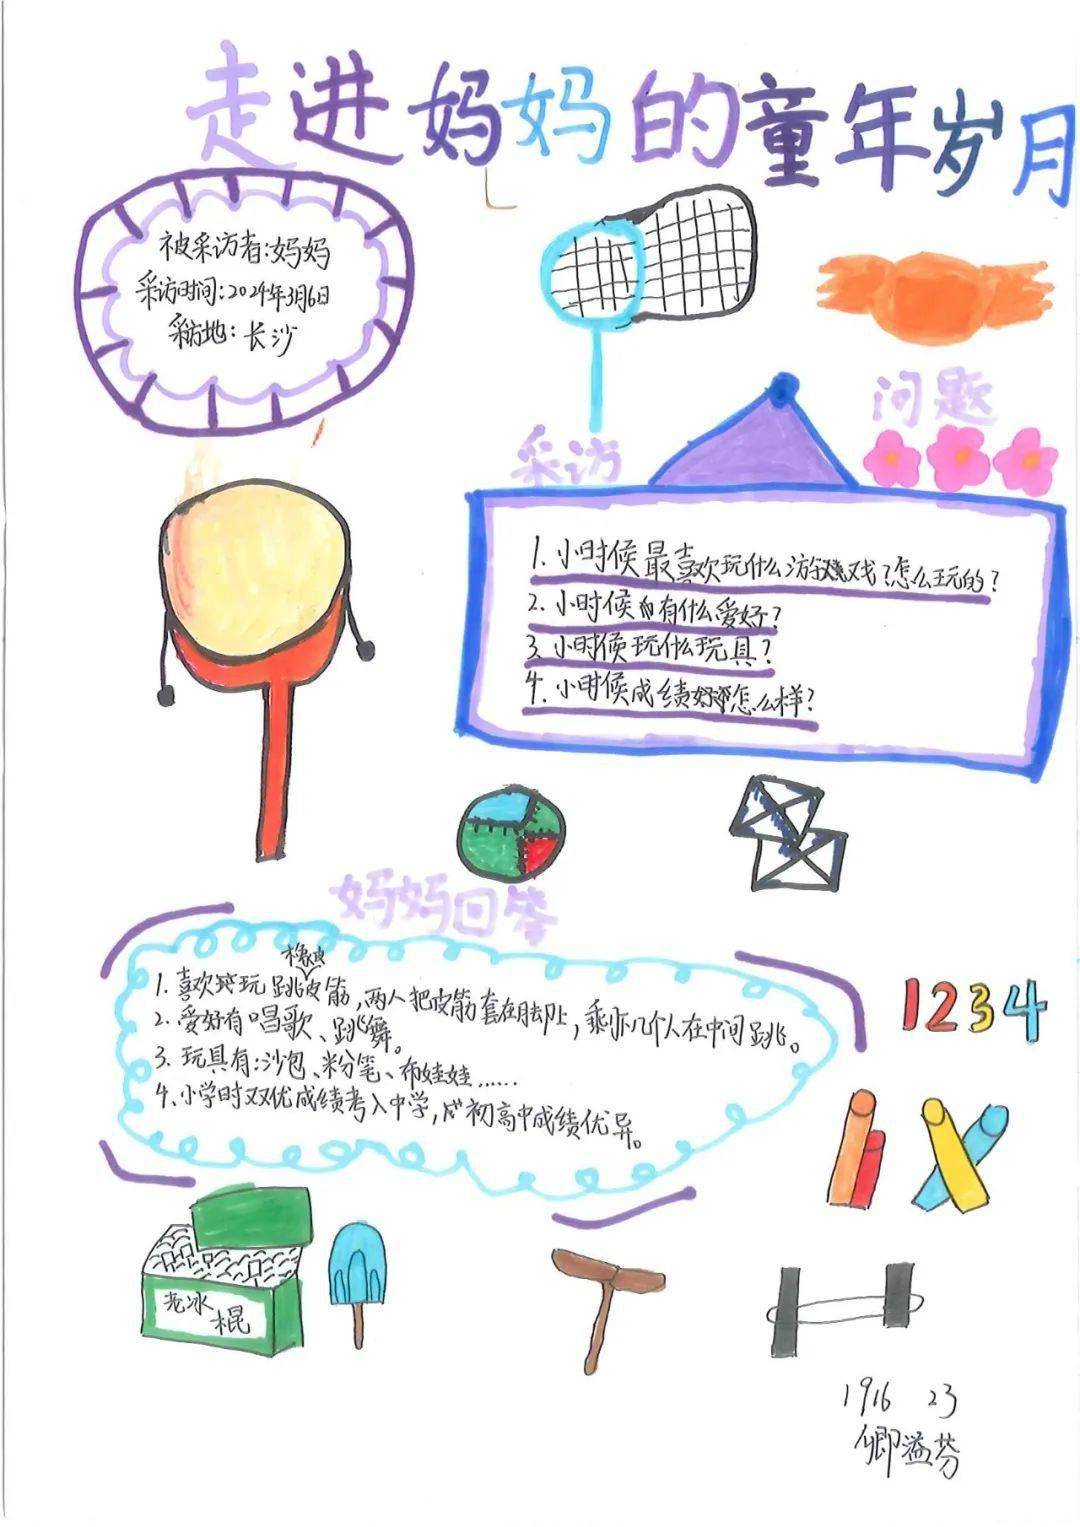 走进妈妈的童年岁月
被采访者:妈妈
采访时间:2024年3月6日
采访地:长沙
采访
问题
1.小时候最喜欢玩什么游戏?怎么玩的?
2.小时候有什么爱好?
3.小时候玩什么玩具?
4.小时候成绩怎么样?
妈妈回答
橡皮
1.喜欢玩跳皮筋,两人把皮筋套在脚上,剩下几个人在中间跳。
2.爱好有唱歌、跳舞。
3.玩具有:沙包、粉笔、布娃娃……
4.小学时双优成绩考入中学,初高中成绩优异。
1234
老冰
棍
1916 23
卿溢芬